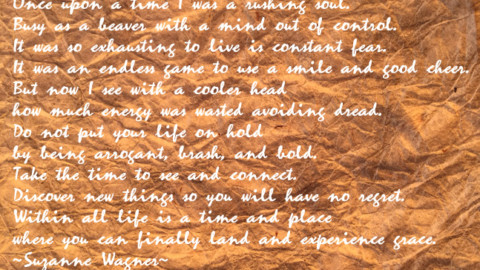 Once upon a time I was a rushing soul.
Busy as a beaver with a mind out of control.
It was so exhausting to live is constant fear.
It was an endless game to use a smile and good cheer.
But now I see with a cooler head
how much energy was wasted avoiding dread.
Do not put your life on hold
by being arrogant, brash, and bold.
Take the time to see and connect.
Discover new things so you will have no regret.
Within all life is a time and place
where you can finally land and experience grace.
~Suzanne Wagner~